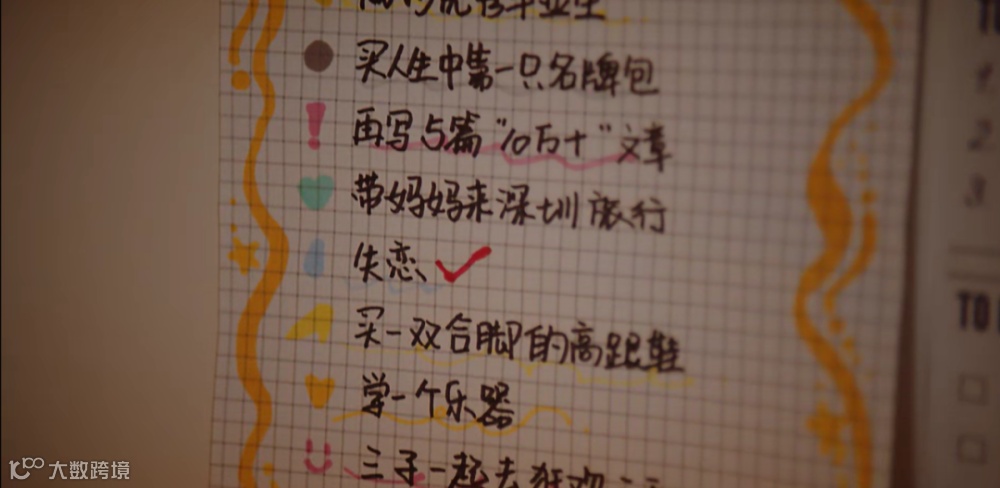 优秀毕业生
买人生中第一只名牌包
再写5篇“10万+”文章
带妈妈来深圳旅行
失恋
买一双合脚的高跟鞋
学一个乐器
三子一起去狂欢
TO
1.
2.
3.
TO
大数跨境